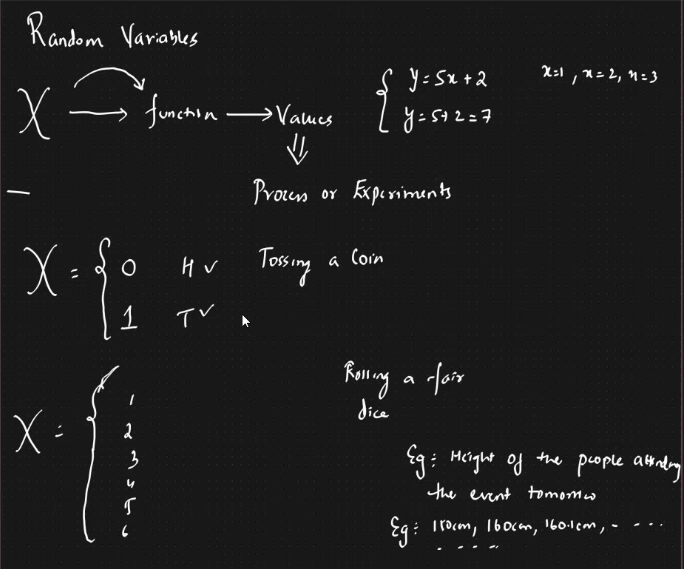 Random Variables
X → function → Values
y = 5x + 2
x=1, x=2, x=3
y = 5+2 = 7
Process or Experiments
X = { 0 H ✓
1 T ✓
Tossing a Coin
X = { 1
2
3
4
5
6
Rolling a fair
dice
Eg: Height of the people attending
the event tomorrow
Eg: 150cm, 160cm, 160.1cm, - ----
- - - -